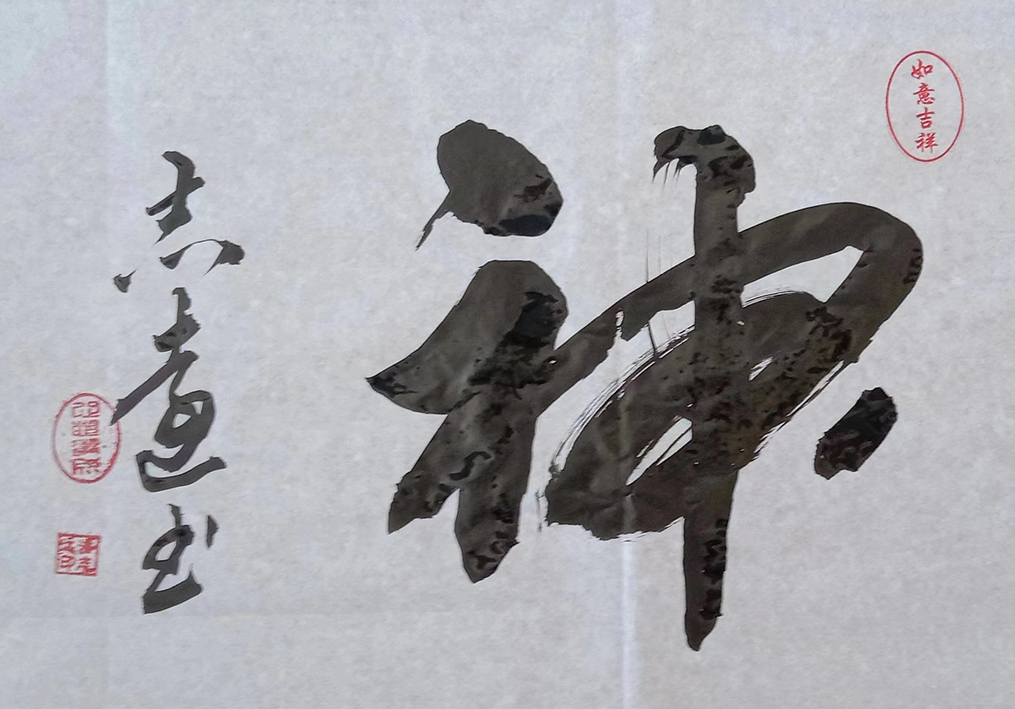 如意吉祥
神
志遠书